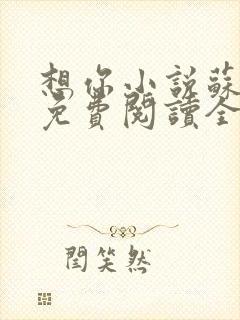 想你小说蘇
免費閱讀全
閆笑然